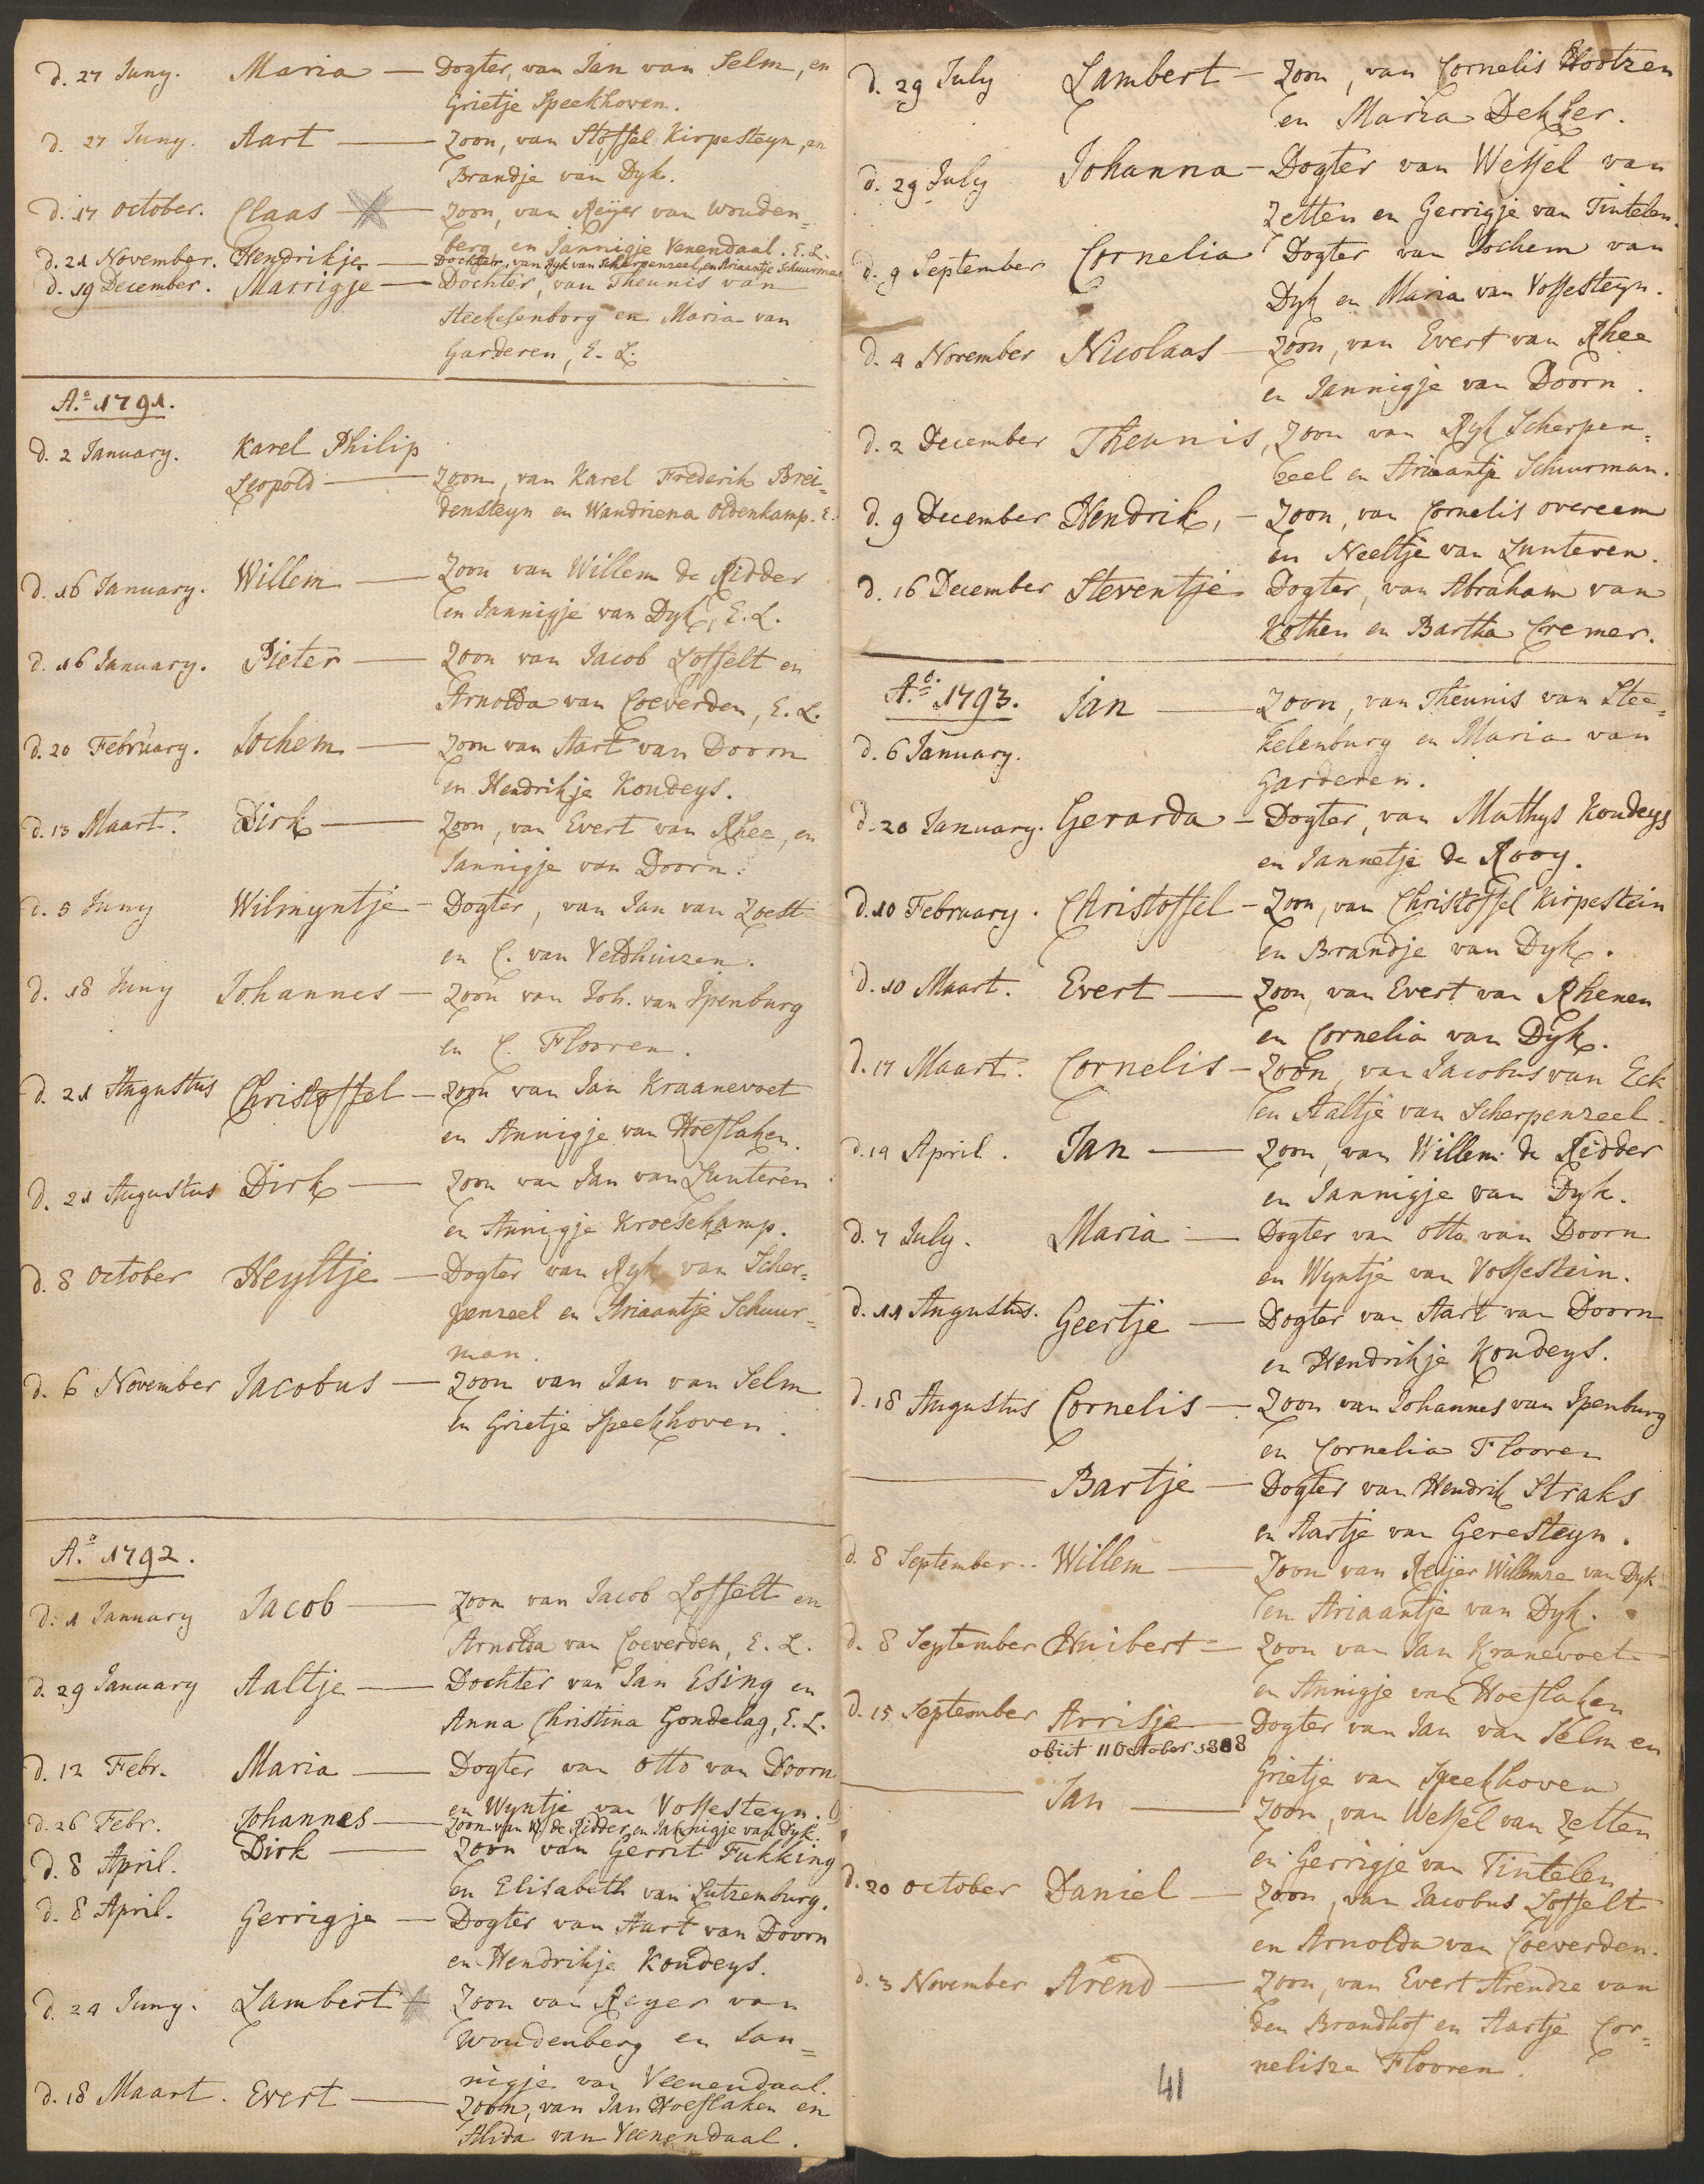 d. 27 Juny. Maria — Dogter, van Jan van Selm, en
Grietje Speekhoven.
d. 27 Juny. Aart — Zoon, van Stoffel Kirpesteyn, en
Brandje van Dyk.
d. 17 October. Claas — Zoon, van Reijer van Wouden=
berg en Jannigje Venendaal. E. L.
d. 21 November. Hendrikje — Dochter, van Ryk van Scherpenzeel, en Ariaantje Schuurman
d. 19 December. Marrigje — Dochter, van Theunis van
Steekelenborg en Maria van
Garderen, E. L.
A.o 1791.
d. 2 January. Karel Philip
Leopold — Zoon, van Karel Frederik Brei=
densteyn en Wandriena Oldenkamp. E.
d. 16 January. Willem — Zoon van Willem de Ridder
en Jannigje van Dyk, E. L.
d. 16 January. Pieter — Zoon van Jacob Loffelt en
Arnolda van Coeverden, E. L.
d. 20 February. Jochem — Zoon van Aart van Doorn
en Hendrikje Koudeys.
d. 13 Maart. Dirk — Zoon, van Evert van Rhee, en
Jannigje van Doorn.
d. 5 Juny Wilmyntje — Dogter, van Jan van Zoest
en C. van Veldhuizen.
d. 18 Juny Johannes — Zoon van Joh. van Ipenburg
en C. Flooren.
d. 21 Augustus Christoffel — Zoon van Jan Kraanevoet
en Annigje van Hoeflaken.
d. 21 Augustus Dirk — Zoon van Jan van Lunteren
en Annigje Kroesekamp.
d. 8 October Heyltje — Dogter van Ryk van Scher=
penzeel en Ariaantje Schuur=
man.
d. 6 November Jacobus — Zoon van Jan van Selm
en Grietje Speekhoven.
A.o 1792.
d. 1 January Jacob — Zoon van Jacob Loffelt en
Arnolda van Coeverden, E. L.
d. 29 January Aaltje — Dochter van Jan Esing en
Anna Christina Gondelag, E. L.
d. 12 Febr. Maria — Dogter van Otto van Doorn
en Wyntje van Vossesteyn.
d. 26 Febr. Johannes — Zoon van W. de Ridder en Jannigje van Dyk.
d. 8 April. Dirk — Zoon van Gerrit Fukking
en Elisabeth van Lutzemburg.
d. 8 April. Gerrigje — Dogter van Aart van Doorn
en Hendrikje Koudeys.
d. 24 Juny. Lambert — Zoon van Reyer van
Woudenberg en Jan=
nigje van Veenendaal.
d. 18 Maart. Evert — Zoon, van Jan Hoeflaken en
Alida van Veenendaal.
d. 29 July Lambert — Zoon, van Cornelis Hootzen
en Maria Dekker.
d. 29 July Johanna — Dogter van Wessel van
Zetten en Gerrigje van Tintelen.
d. 9 September Cornelia Dogter van Jochem van
Dyk en Maria van Vossesteyn.
d. 4 November Nicolaas — Zoon, van Evert van Rhee
en Jannigje van Doorn.
d. 2 December Theunis, Zoon van Ryk Scherpen=
zeel en Ariaantje Schuurman.
d. 9 December Hendrik, — Zoon, van Cornelis overeem
en Neeltje van Lunteren.
d. 16 December Steventje Dogter, van Abraham van
Kothen en Bartha Cremer.
A.o 1793. Jan — Zoon, van Theunis van Stee=
d. 6 January. kelenburg en Maria van
Garderen.
d. 20 January. Gerarda — Dogter, van Mathys Koudeys
en Jannetje de Rooy.
d. 10 February. Christoffel — Zoon, van Christoffel Kirpestein
en Brandje van Dyk.
d. 10 Maart. Evert — Zoon, van Evert van Rhenen
en Cornelia van Dyk.
d. 17 Maart. Cornelis — Zoon, van Jacobus van Eck
en Aaltje van Scherpenzeel.
d. 14 April. Jan — Zoon, van Willem de Ridder
en Jannigje van Dyk.
d. 7 July. Maria — Dogter van Otto van Doorn
en Wyntje van Vossestein.
d. 11 Augustus. Geertje — Dogter van Aart van Doorn
en Hendrikje Koudeys.
d. 18 Augustus Cornelis — Zoon van Johannes van Ipenburg
en Cornelia Flooren
— Bartje — Dogter van Hendrik Straks
en Aartje van Geresteyn.
d. 8 September.. Willem — Zoon van Reijer Willemze van Dyk
en Ariaantje van Dyk.
d. 8 September Huibert — Zoon van Jan Kranevoet
en Annigje van Hoeflaken
d. 15 September Arrisje — Dogter van Jan van Selm en
obiit 11 October 1808
Grietje van Speekhoven
— Jan — Zoon, van Wessel van Zetten
en Gerrigje van Tintelen
d. 20 October Daniel — Zoon, van Jacobus Loffelt
en Arnolda van Coeverden.
d. 3 November Arend — Zoon, van Evert Arendze van
den Brandhof en Aartje Cor=
nelisze Flooren.
41